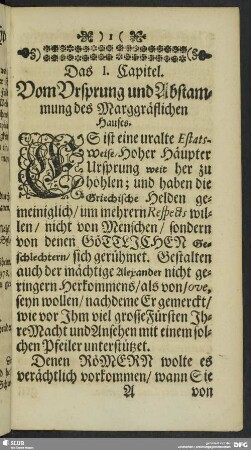 ) 1 (
Das I. Capitel.
Vom Vrsprung und Abstam-
mung des Marggräflichen
Hauses.
ES ist eine uralte Estats-
Weise / Hoher Häupter
Ursprung weit her zu
hohlen; und haben die
Griechische Helden ge-
meiniglich / um mehrern Respects wil-
len / nicht von Menschen / sondern
von denen GÖTTLICHEN Ge-
schlechtern / sich gerühmet. Gestalten
auch der mächtige Alexander nicht ge-
ringern Herkommens / als von Jove,
seyn wollen / nachdeme Er gemerckt /
wie vor Ihm viel grosse Fürsten Ih-
re Macht und Ansehen mit einem sol-
chen Pfeiler unterstützet.
Denen RöMERN wolte es
verächtlich vorkommen / wann Sie
A von
SLUB